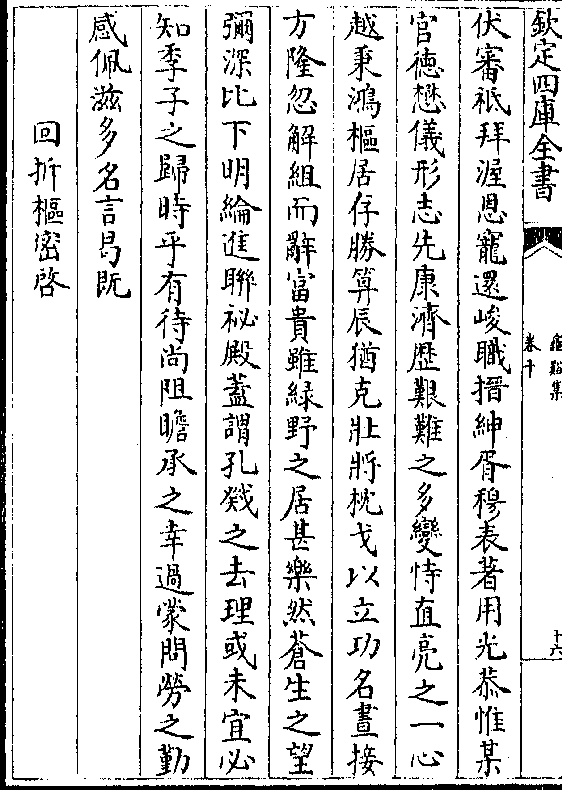 欽定四庫全書
龜谿集
卷十
十六
伏審祇拜渥恩寵還峻職搢紳胥穆表著用光恭惟某
官徳懋儀形志先康濟歴艱難之多變恃直亮之一心
越秉鴻樞居存勝算辰猶克壯將枕戈以立功名晝接
方隆忽解組而辭富貴雖緑野之居甚樂然蒼生之望
彌深比下明綸進聯祕殿葢謂孔戣之去理或未宜必
知季子之歸時乎有待尚阻瞻承之幸過蒙問勞之勤
感佩滋多名言曷既
回折樞密啓